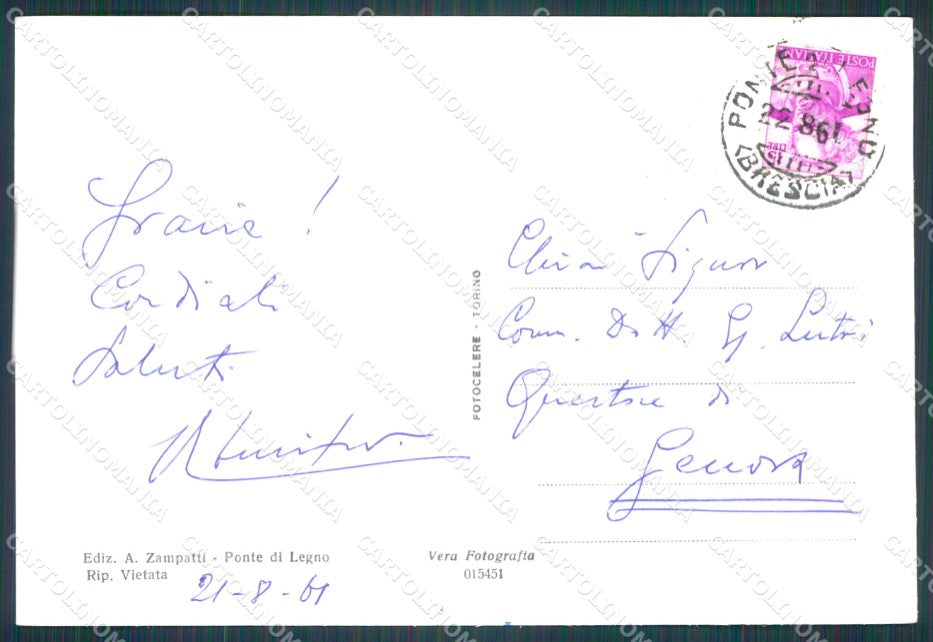 Grazie!
Cordiali
Saluti
Chiar. Signor
Comm. Dott. G.
Questore di
Genova
21-8-61
Ediz. A. Zampatti - Ponte di Legno
Rip. Vietata
Vera Fotografia
015451
FOTOCELERE - TORINO
POSTE ITALIANE
LIRE 15
PONTE DI LEGNO
22.8.61
(BRESCIA)
CARTOLINOMANIA